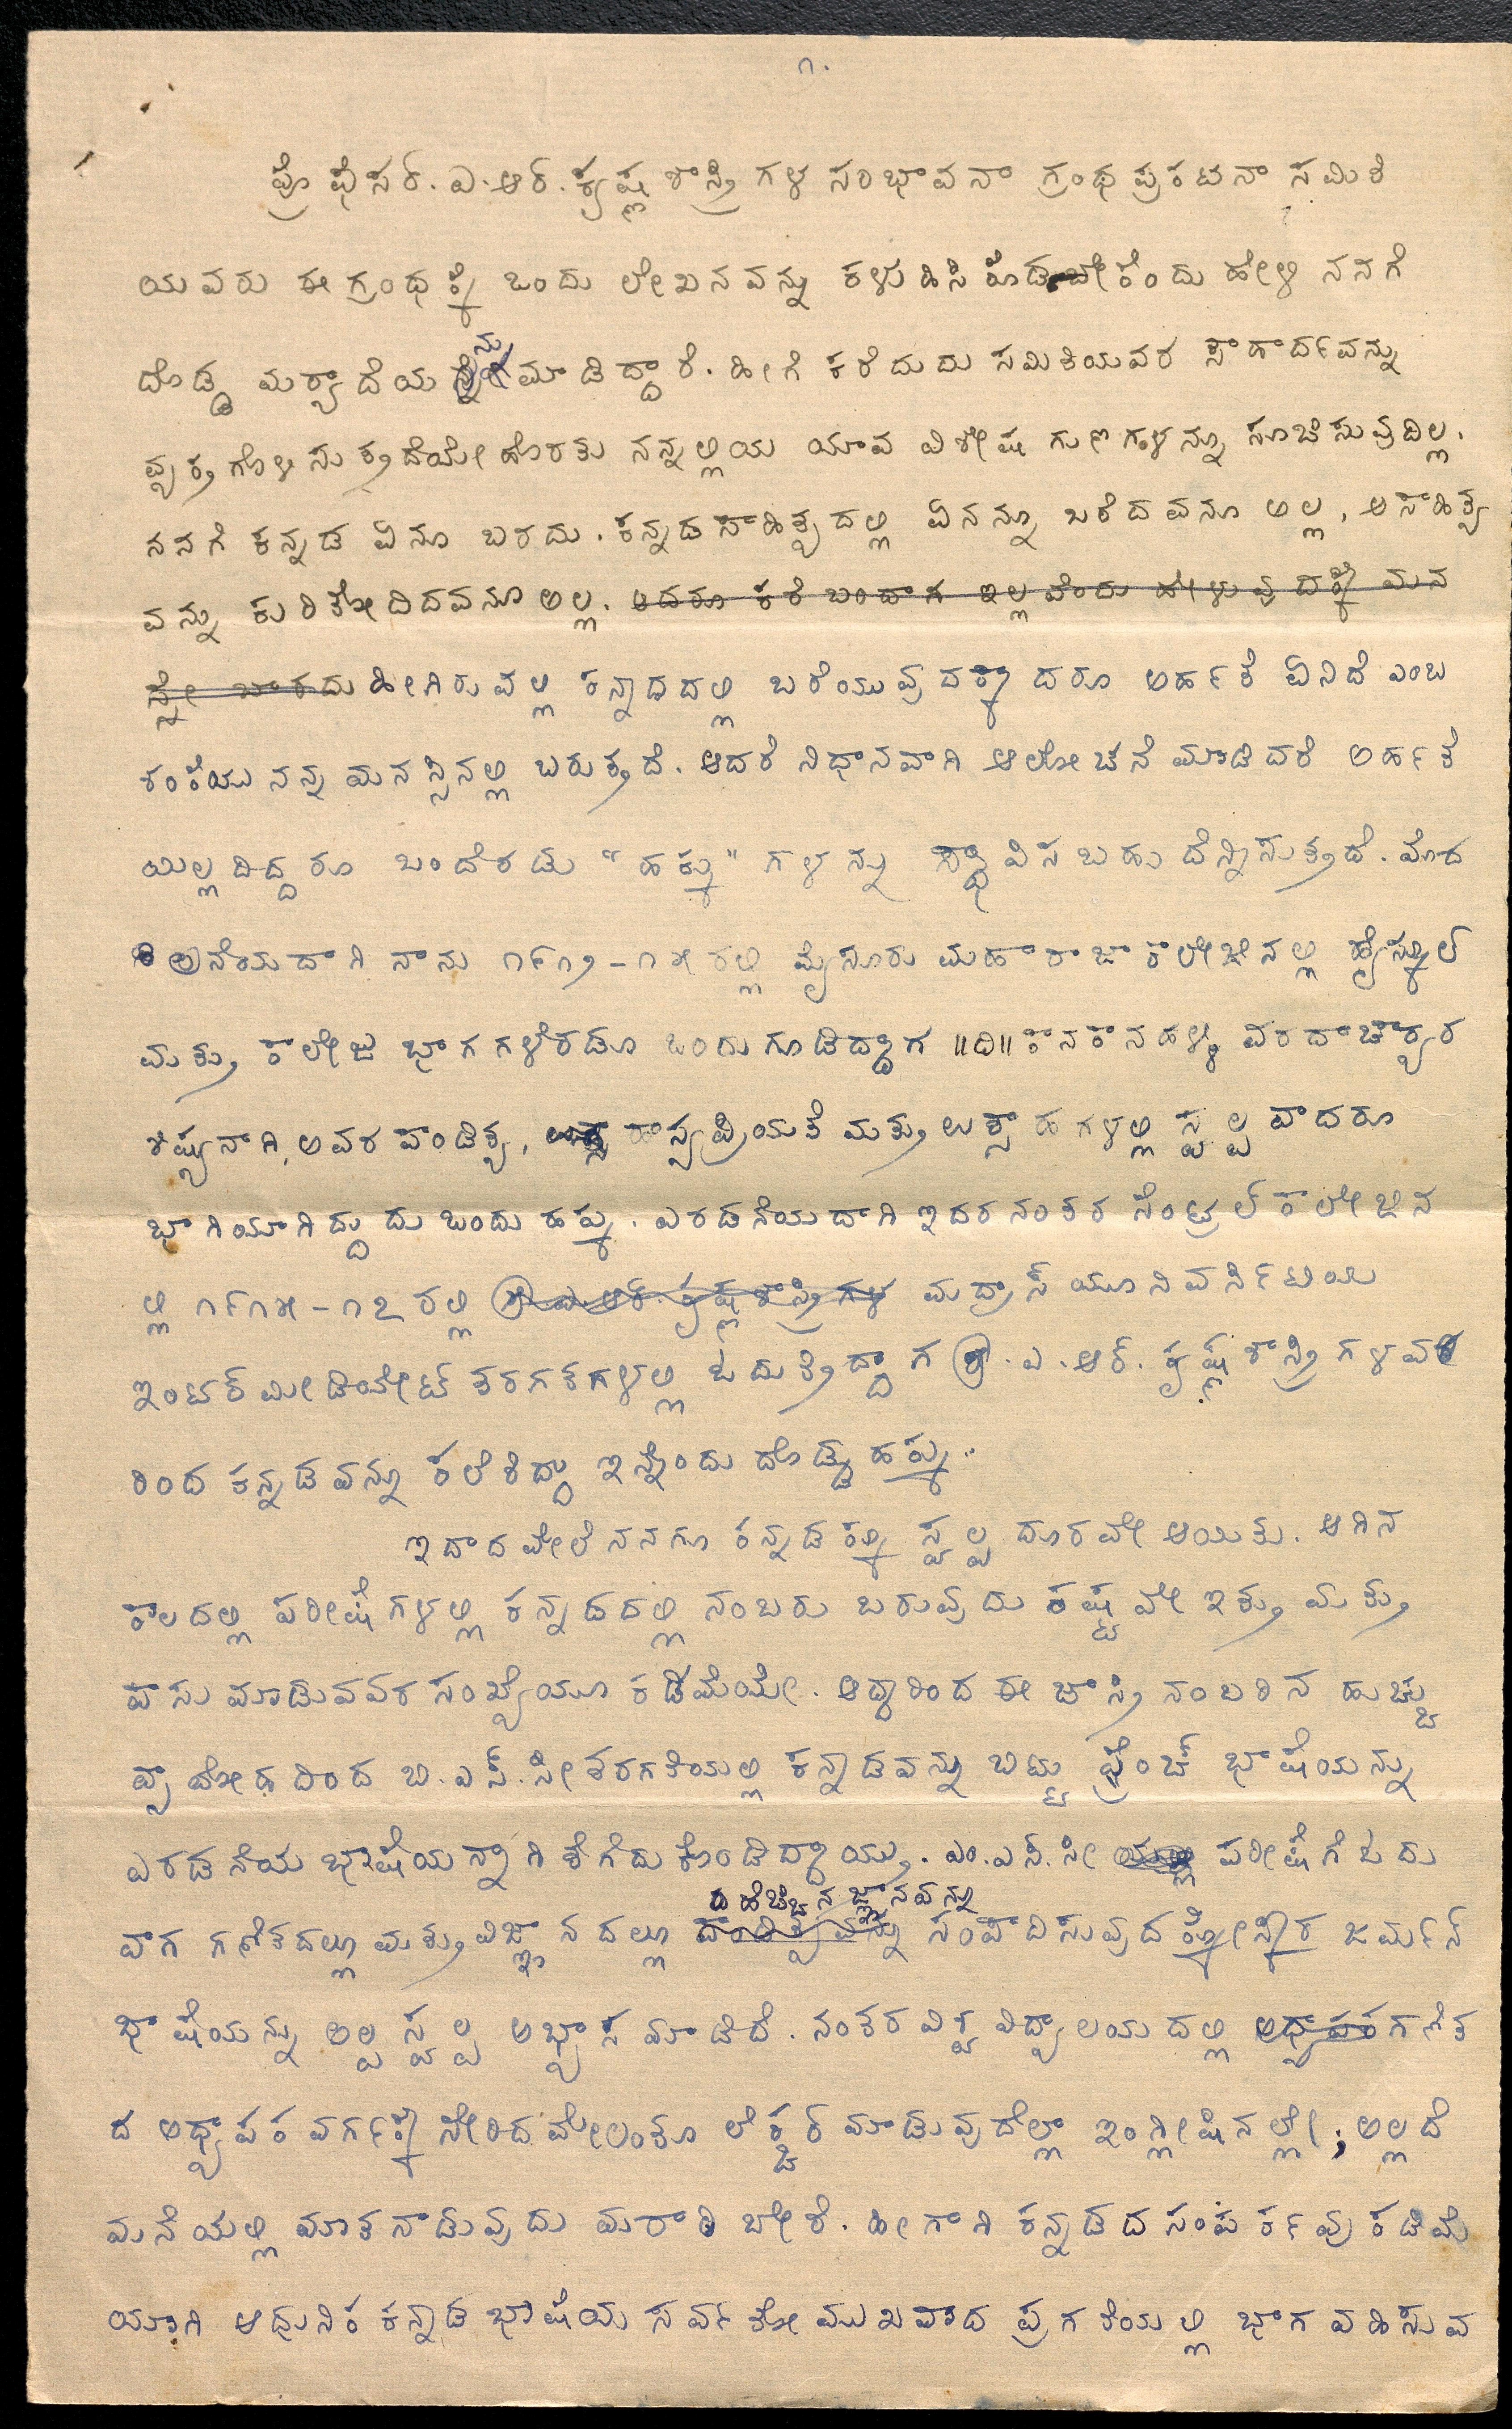 ೧.
ಪ್ರೊಫೆಸರ್. ಎ. ಆರ್. ಕೃಷ್ಣಶಾಸ್ತ್ರಿಗಳ ಸಂಭಾವನಾ ಗ್ರಂಥ ಪ್ರಕಟನಾ ಸಮಿತಿ
ಯವರು ಈ ಗ್ರಂಥಕ್ಕೆ ಒಂದು ಲೇಖನವನ್ನು ಕಳುಹಿಸಿಕೊಡಬೇಕೆಂದು ಹೇಳಿ ನನಗೆ
ದೊಡ್ಡ ಮರ್ಯಾದೆಯನ್ನು ಮಾಡಿದ್ದಾರೆ. ಹೀಗೆ ಕರೆದುದು ಸಮಿತಿಯವರ ಸೌಹಾರ್ದವನ್ನು
ವ್ಯಕ್ತಗೊಳಿಸುತ್ತದೆಯೇ ಹೊರತು ನನ್ನಲ್ಲಿಯ ಯಾವ ವಿಶೇಷ ಗುಣಗಳನ್ನೂ ಸೂಚಿಸುವುದಿಲ್ಲ.
ನನಗೆ ಕನ್ನಡ ಏನೂ ಬರದು. ಕನ್ನಡ ಸಾಹಿತ್ಯದಲ್ಲಿ ಏನನ್ನೂ ಬರೆದವನೂ ಅಲ್ಲ, ಆ ಸಾಹಿತ್ಯ
ವನ್ನು ಕುರಿತೋದಿದವನೂ ಅಲ್ಲ. ಆದರೂ ಕರೆ ಬಂದಾಗ ಇಲ್ಲವೆಂದು ಹೇಳುವುದಕ್ಕೆ ಮನ
ಸ್ಸೇ ಬಾರದು ಹೀಗಿರುವಲ್ಲಿ ಕನ್ನಾಡದಲ್ಲಿ ಬರೆಯುವುದಕ್ಕಾದರೂ ಅರ್ಹತೆ ಏನಿದೆ ಎಂಬ
ಶಂಕೆಯು ನನ್ನ ಮನಸ್ಸಿನಲ್ಲಿ ಬರುತ್ತದೆ. ಆದರೆ ನಿಧಾನವಾಗಿ ಆಲೋಚನೆ ಮಾಡಿದರೆ ಅರ್ಹತೆ
ಯಿಲ್ಲದಿದ್ದರೂ ಒಂದೆರಡು "ಹಕ್ಕು" ಗಳನ್ನು ಸ್ಥಾಪಿಸಬಹುದೆನ್ನಿಸುತ್ತದೆ. ಮೊದ
ಲನೆಯದಾಗಿ ನಾನು ೧೯೧೨-೧೫ರಲ್ಲಿ ಮೈಸೂರು ಮಹಾರಾಜಾ ಕಾಲೇಜಿನಲ್ಲಿ ಹೈಸ್ಕೂಲ್
ಮತ್ತು ಕಾಲೇಜು ಭಾಗಗಳೆರಡೂ ಒಂದುಗೂಡಿದ್ದಾಗ ||ದಿ|| ಕಾನಕಾನಹಳ್ಳಿ ವರದಾಚಾರ್ಯರ
ಶಿಷ್ಯನಾಗಿ, ಅವರ ಪಾಂಡಿತ್ಯ, ಹಾಸ್ಯಪ್ರಿಯತೆ ಮತ್ತು ಉತ್ಸಾಹಗಳಲ್ಲಿ ಸ್ವಲ್ಪವಾದರೂ
ಭಾಗಿಯಾಗಿದ್ದುದು ಒಂದು ಹಕ್ಕು. ಎರಡನೆಯದಾಗಿ ಇದರ ನಂತರ ಸೆಂಟ್ರಲ್ ಕಾಲೇಜಿನ
ಲ್ಲಿ ೧೯೧೫-೧೭ರಲ್ಲಿ ಶ್ರೀ ಎ. ಆರ್. ಕೃಷ್ಣಶಾಸ್ತ್ರಿಗಳ ಮದ್ರಾಸ್ ಯೂನಿವರ್ಸಿಟಿಯ
ಇಂಟರ್ ಮೀಡಿಯೇಟ್ ತರಗತಗಳಲ್ಲಿ ಓದುತ್ತಿದ್ದಾಗ ಶ್ರೀ. ಎ. ಆರ್. ಕೃಷ್ಣಶಾಸ್ತ್ರಿಗಳವರ
ರಿಂದ ಕನ್ನಡವನ್ನೂ ಕಲೆತಿದ್ದು ಇನ್ನೊಂದು ದೊಡ್ಡ ಹಕ್ಕು.
ಇದಾದ ಮೇಲೆ ನನಗೂ ಕನ್ನಡಕ್ಕೂ ಸ್ವಲ್ಪ ದೂರವೇ ಆಯಿತು. ಆಗಿನ
ಕಾಲದಲ್ಲಿ ಪರೀಕ್ಷೆಗಳಲ್ಲಿ ಕನ್ನಡದಲ್ಲಿ ನಂಬರು ಬರುವುದು ಕಷ್ಟವೇ ಇತ್ತು ಮತ್ತು
ಪಾಸು ಮಾಡುವವರ ಸಂಖ್ಯೆಯೂ ಕಡಿಮೆಯೇ. ಆದ್ದರಿಂದ ಈ ಜಾಸ್ತಿ ನಂಬರಿನ ಹುಚ್ಚು
ವ್ಯಾಮೋಹದಿಂದ ಬಿ. ಎಸ್. ಸೀ ತರಗತಿಯಲ್ಲಿ ಕನ್ನಾಡವನ್ನು ಬಿಟ್ಟು ಫ್ರೆಂಚ್ ಭಾಷೆಯನ್ನು
ಎರಡನೆಯ ಭಾಷೆಯನ್ನಾಗಿ ತೆಗೆದುಕೊಂಡಿದ್ದಾಯ್ತು. ಎಂ. ಎಸ್. ಸೀ ಪರೀಕ್ಷೆಗೆ ಓದು
ಹೆಚ್ಚಿನ ಜ್ಞಾನವನ್ನು
ವಾಗ ಗಣಿತದಲ್ಲೂ ಮತ್ತು ವಿಜ್ಞಾನದಲ್ಲೂ ಪಾಂಡಿತ್ಯವನ್ನು ಸಂಪಾದಿಸುವುದಕ್ಕೋಸ್ಕರ ಜರ್ಮನ್
ಭಾಷೆಯನ್ನು ಅಲ್ಪ ಸ್ವಲ್ಪ ಅಭ್ಯಾಸ ಮಾಡಿದೆ. ನಂತರ ವಿಶ್ವವಿದ್ಯಾಲಯದಲ್ಲಿ ಅಧ್ಯಾಪಕ ಗಣಿತ
ದ ಅಧ್ಯಾಪಕ ವರ್ಗಕ್ಕೆ ಸೇರಿದ ಮೇಲಂತೂ ಲೆಕ್ಚರ್ ಮಾಡುವುದೆಲ್ಲಾ ಇಂಗ್ಲೀಷಿನಲ್ಲೇ; ಅಲ್ಲದೆ
ಮನೆಯಲ್ಲಿ ಮಾತನಾಡುವುದು ಮರಾಠಿ ಬೇರೆ. ಹೀಗಾಗಿ ಕನ್ನಡದ ಸಂಪರ್ಕವು ಕಡಿಮೆ
ಯಾಗಿ ಆಧುನಿಕ ಕನ್ನಾಡ ಭಾಷೆಯ ಸರ್ವತೋಮುಖವಾದ ಪ್ರಗತಿಯಲ್ಲಿ ಭಾಗವಹಿಸುವ